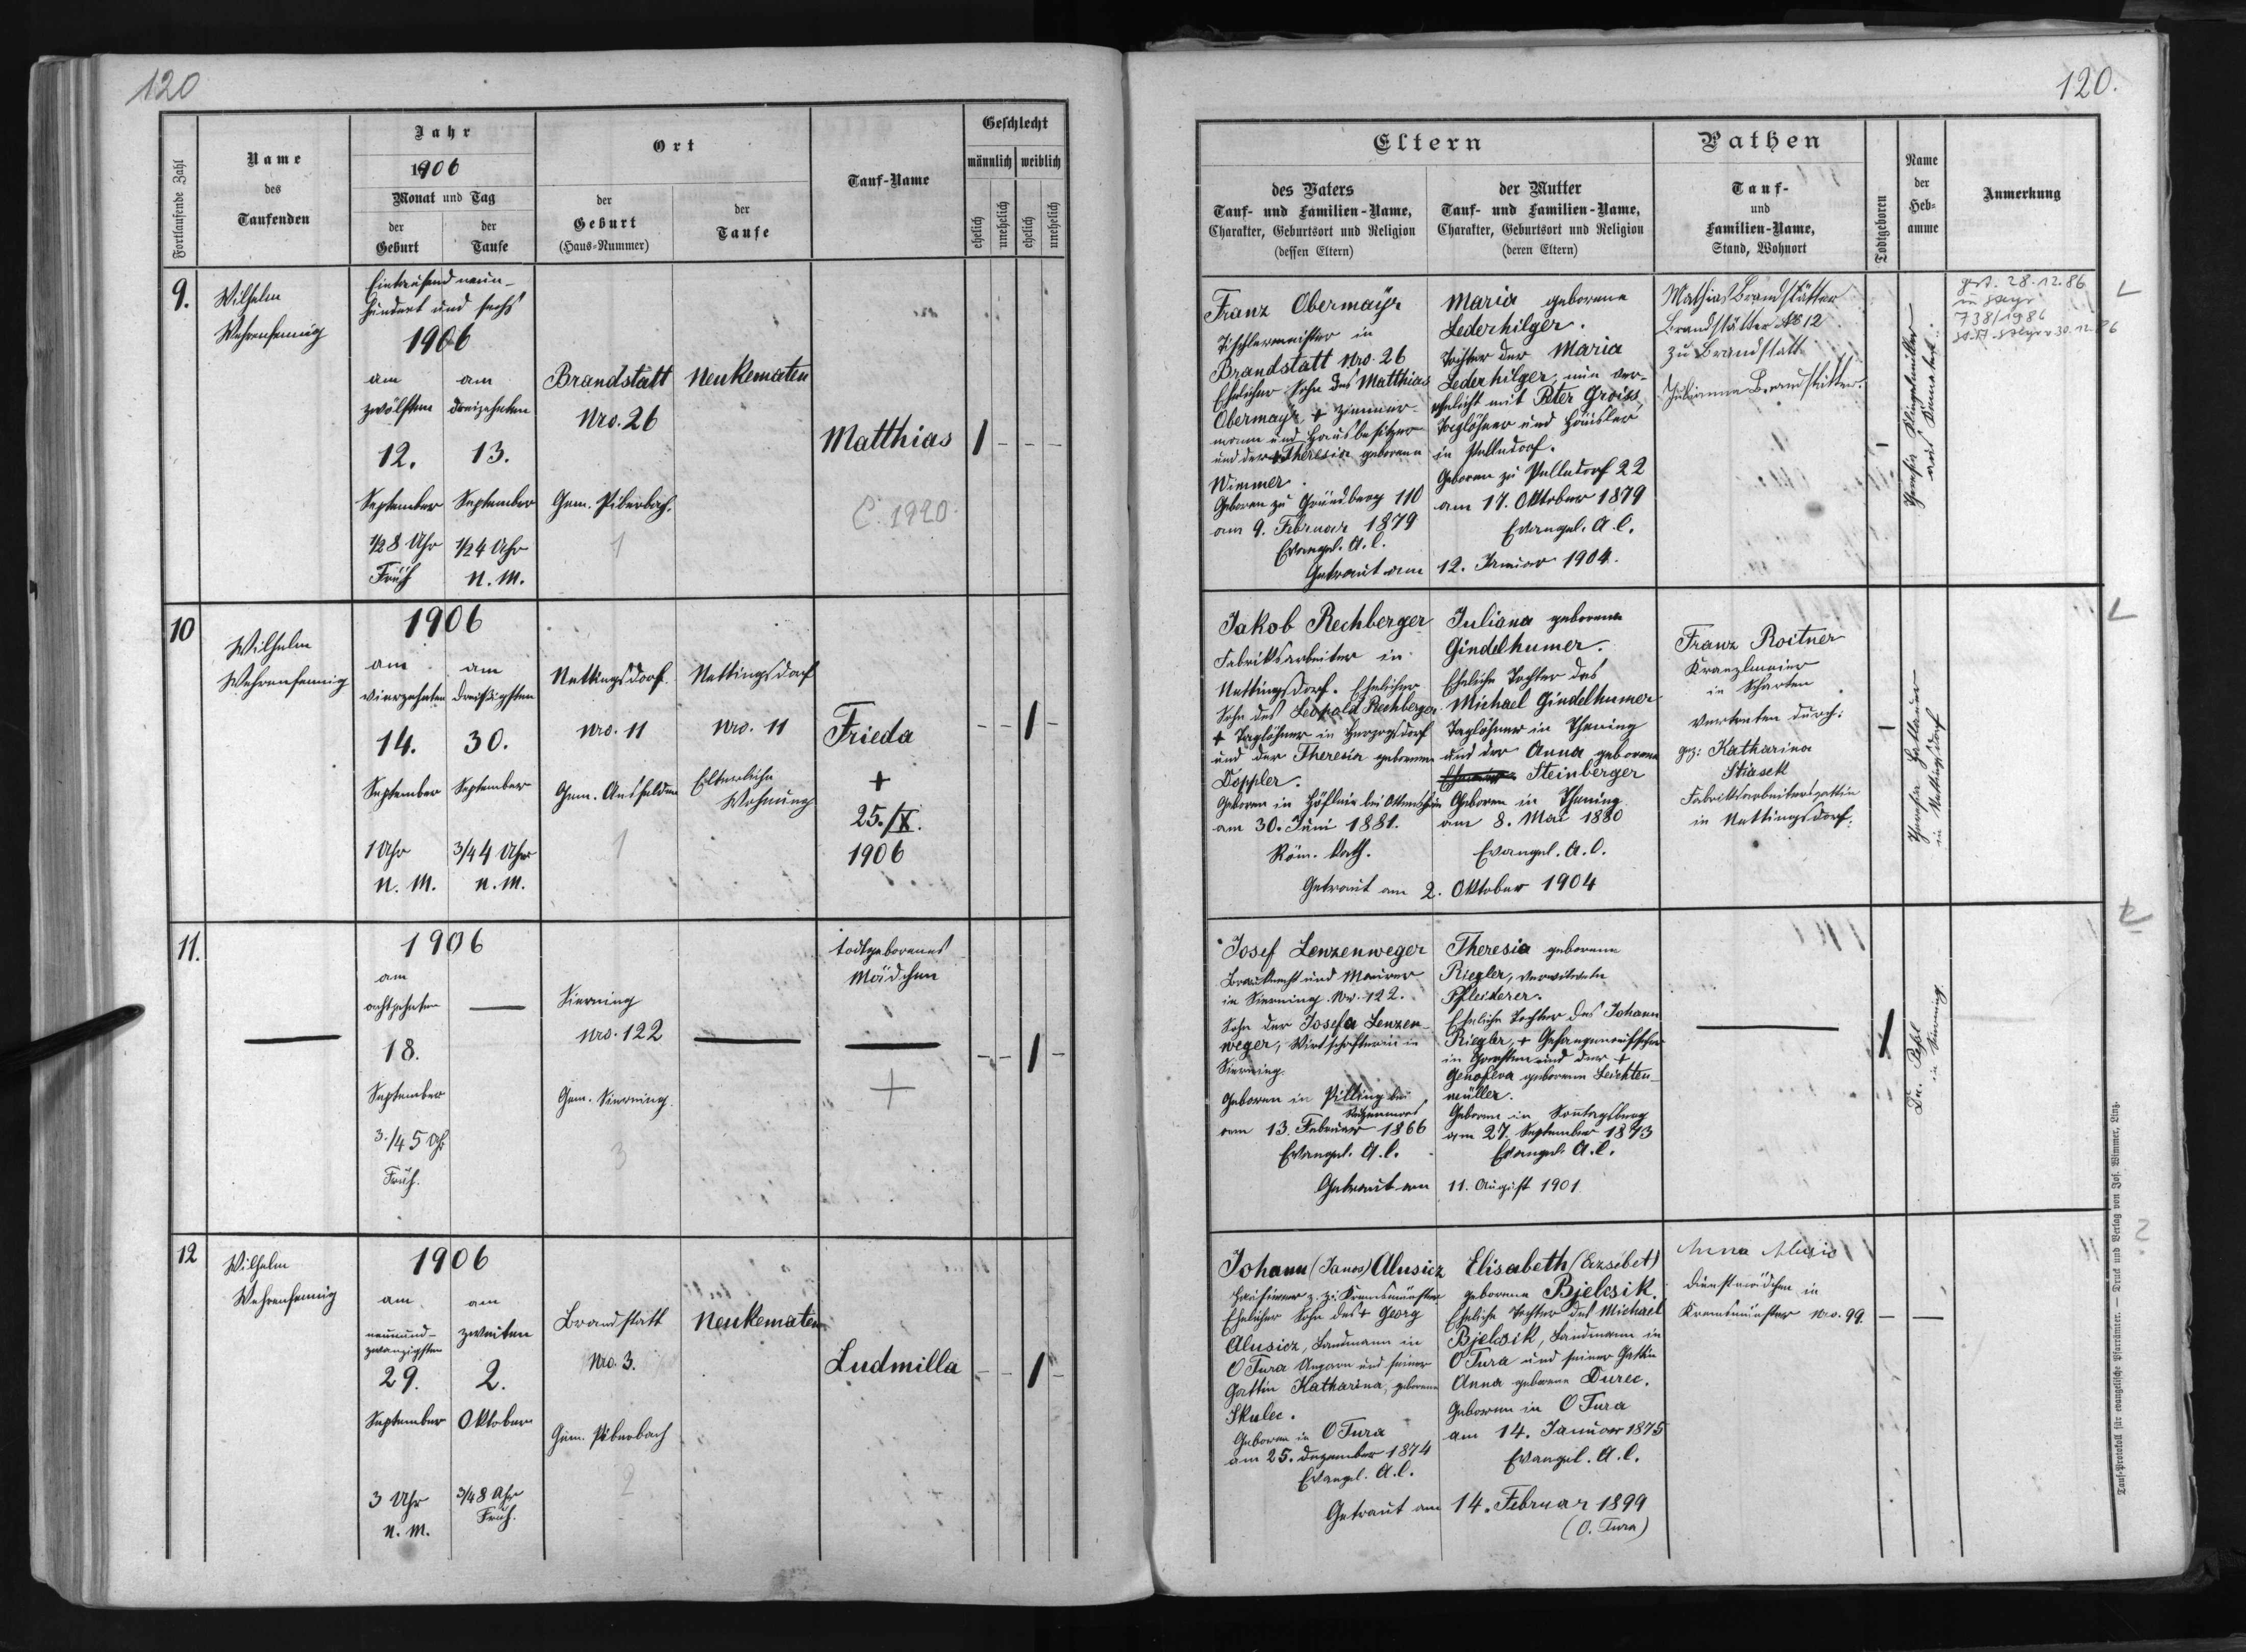 120
120.
Fortlaufende Zahl
Name
des
Taufenden
Jahr
1906
Monat und Tag
der
Geburt
der
Taufe
Ort
der
Geburt
(Haus-Nummer)
der
Taufe
Tauf-Name
Geschlecht
männlich
weiblich
ehelich
unehelich
ehelich
unehelich
Eltern
des Vaters
Tauf- und Familien-Name,
Charakter, Geburtsort und Religion
(dessen Eltern)
der Mutter
Tauf- und Familien-Name,
Charakter, Geburtsort und Religion
(deren Eltern)
Pathen
Tauf-
und
Familien-Name,
Stand, Wohnort
Todtgeboren
Name
der
Heb-
amme
Anmerkung
9.
Wilhelm
Wehrenfennig
Eintausend neun-
hundert und sechs
1906
am
zwölften
12.
September
1/28 Uhr
Früh
am
dreizehnten
13.
September
1/24 Uhr
N. M.
Brandstatt
Nro. 26
Gem. Piberbach.
1
Neukematen
Matthias
C. 1920.
1 - - -
Franz Obermayr
Tischlermeister in
Brandstatt Nro. 26
Ehelicher Sohn des Matthias
Obermayr + Zimmer-
mann und Hausbesitzer
und der + Theresia geborenen
Wimmer.
Geboren zu Gründberg 110
am 9. Februar 1879
Evangel. A. C.
Maria geborene
Lederhilger.
Tochter der Maria
Lederhilger, nun ver-
ehelicht mit Peter Groiss
Taglöhner und Häusler
in
Geboren zu 22
am 17. Oktober 1879
Evangel. A. C.
Getraut am 12. Januar 1904.
Mathias Brandstätter
Brandstätter No 12
zu Brandstatt
Julianna Brandstätter.
-
Theresia
aus
gest. 28.12.86
in Steyr
738/1986
St. A. Steyr v 30.12.86
10
Wilhelm
Wehrenfennig
1906
am
vierzehnten
14.
September
1 Uhr
N. M.
am
dreißigsten
30.
September
3/44 Uhr
N. M.
Nettingsdorf
Nro. 11
Gem. Ansfelden
1
Nettingsdorf
Nro. 11
Elterliche
Wohnung
Frieda
+
25./X.
1906
- - 1 -
Jakob Rechberger
Fabriksarbeiter in
Nettingsdorf. Ehelicher
Sohn des Leopold Rechberger
+ Taglöhner in Herzogsdorf
und der Theresia geborenen
Doppler.
Geboren in Höflein bei Ottensheim
am 30. Juni 1881.
Röm. Kath.
Juliana geborene
Gindelhumer.
Eheliche Tochter des
Michael Gindelhumer
Taglöhner in Thening
und der Anna geborene
Steinberger
Geboren in Thening
am 8. Mai 1880
Evangel. A. C.
Getraut am 2. Oktober 1904
Franz Roitner
Kranzlmaier
in Scharten
vertreten durch:
gez: Katharina
Stiasek
Fabriksarbeitersgattin
in Nettingsdorf.
-
Theresia
in Nettingsdorf
11.
1906
am
achtzehnten
18.
September
3/45 Uhr
Früh.
Sierning
Nro. 122
Gem. Sierning.
3
todtgeborenes
Mädchen
+
- - 1 -
Josef Lenzenweger
Brauknecht und Maurer
in Sierning Nr. 122.
Sohn der Josefa Lenzen-
weger, Wirtschafterin in
Sierning.
Geboren in Pilling bei
am 13. Februar 1866
Evangel. A. C.
Theresia geborene
Riegler, verwitwete
Pfleiderer.
Eheliche Tochter des Johann
Riegler, + Gefangenaufseher
in Garsten und der +
Genofeva geborene Leichten-
müller.
Geboren in Sonntagsberg
am 27. September 1873
Evangel. A. C.
Getraut am 11. August 1901
1
in Sierning
12
Wilhelm
Wehrenfennig
1906
am
neunund-
zwanzigsten
29.
September
3 Uhr
N. M.
am
zweiten
2.
Oktober
3/48 Uhr
Früh.
Brandstatt
Nro. 3.
Gem. Piberbach
2
Neukematen
Ludmilla
- - 1 -
Johann (Janos) Alusicz
Hausierer z. Z. Kremsmünster
Ehelicher Sohn des + Georg
Alusicz, Landmann in
O Tura Ungarn und seiner
Gattin Katharina, geborene
Skulec.
Geboren in O Tura
am 25. Dezember 1874
Evangel. A. C.
Elisabeth (Erzsébet)
geborene Bjelcsik.
Eheliche Tochter des Michael
Bjelcsik, Landmann in
O Tura und seiner Gattin
Anna geborene Durec.
Geboren in O Tura
am 14. Januar 1875
Evangel. A. C.
Getraut am 14. Februar 1899
(O. Tura)
Anna Alusic
Dienstmädchen in
Kremsmünster Nro. 99.
- -
?
Tauf-Protokoll für evangelische Pfarrämter. — Druck und Verlag von Jos. Wimmer, Linz.